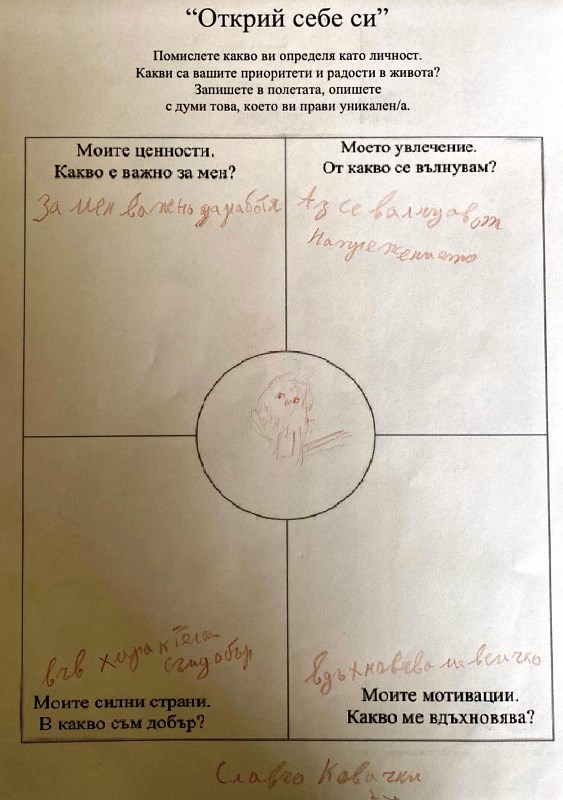 “Открий себе си”
Помислете какво ви определя като личност.
Какви са вашите приоритети и радости в живота?
Запишете в полетата, опишете
с думи това, което ви прави уникален/а.
Моите ценности.
Какво е важно за мен?
За мен важно да работя
Моето увлечение.
От какво се вълнувам?
Аз се валнувам от
напрежението
във характера
съм добър
Моите силни страни.
В какво съм добър?
вдъхновява ме всичко
Моите мотивации.
Какво ме вдъхновява?
Славчо Ковачки